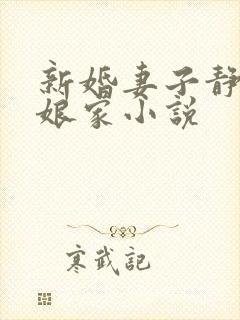 新婚妻子静
娘家小説
寒武記